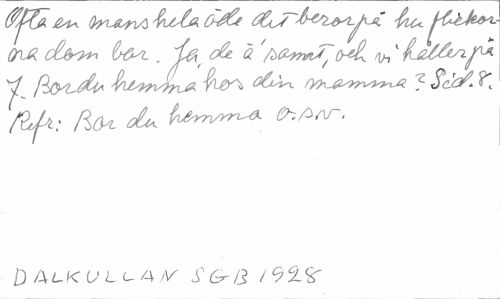 Ofta en mans hela öde det beror på hu flickor-
na dom bor. Ja, de ä' sannt, och vi håller på
7. Bor du hemma hos din mamma? Sid. 8.
Refr: Bor du hemma o.s.v.
DALKULLAN SGB 1928